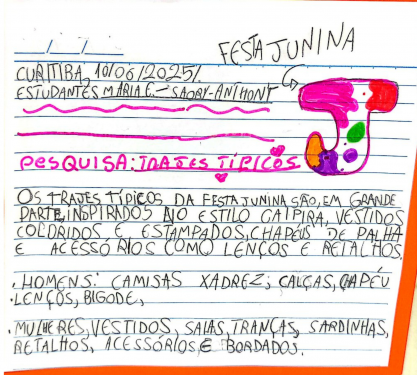 FESTA JUNINA
CURITIBA, 10/06/2025/.
ESTUDANTES MARIA C. - SAORY - ANTHONY
PESQUISA: TRAJES TÍPICOS
OS TRAJES TÍPICOS DA FESTA JUNINA SÃO, EM GRANDE
PARTE, INSPIRADOS NO ESTILO CAIPIRA, VESTIDOS
COLORIDOS E ESTAMPADOS, CHAPÉUS DE PALHA
E ACESSÓRIOS COMO LENÇOS E RETALHOS.
. HOMENS: CAMISAS XADREZ; CALÇAS, CHAPÉU
. LENÇOS, BIGODE,
. MULHERES, VESTIDOS, SAIAS, TRANÇAS, SARDINHAS,
RETALHOS, ACESSÓRIOS, E BORDADOS.